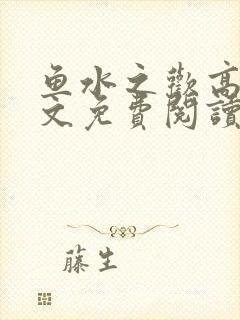 鱼水之歡高
文免費閱讀
藤生